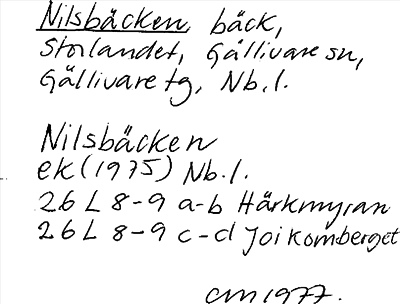 Nilsbäcken, bäck,
Storlandet, Gällivare sn,
Gällivare tg, Nb.l.
Nilsbäcken
ek (1975) Nb.l.
26 L 8-9 a-b Härkmyran
26 L 8-9 c-d Joikomberget
CM 1977.